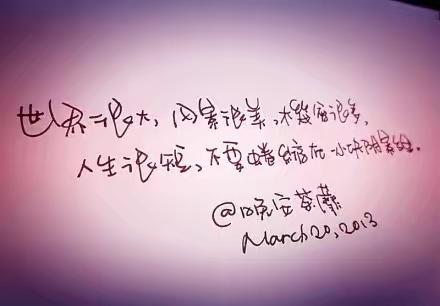 世界很大，风景很美，机会很多，
人生很短，不要蜷缩在一小块阴影里。
@晚安蔷薇
March 20, 2013